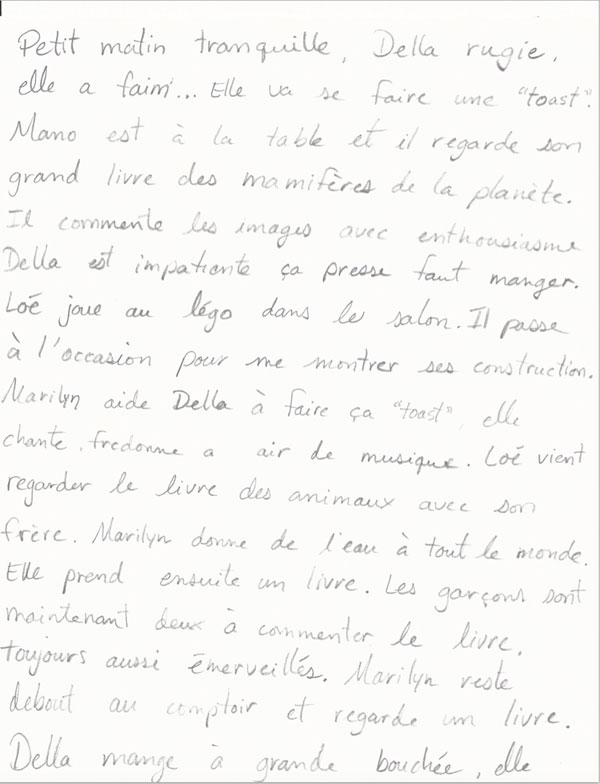 Petit matin tranquille, Della rugie,
elle a faim... Elle va se faire une "toast".
Mano est à la table et il regarde son
grand livre des mamifères de la planète.
Il commente les images avec enthousiasme
Della est impatiente ça presse faut manger.
Loé joue au légo dans le salon. Il passe
à l'occasion pour me montrer ses construction.
Marilyn aide Della à faire ça "toast", elle
chante, fredonne a air de musique. Loé vient
regarder le livre des animaux avec son
frère. Marilyn donne de l'eau à tout le monde.
Elle prend ensuite un livre. Les garçons sont
maintenant deux à commenter le livre,
toujours aussi émerveillés. Marilyn reste
debout au comptoir et regarde un livre.
Della mange à grande bouchée, elle